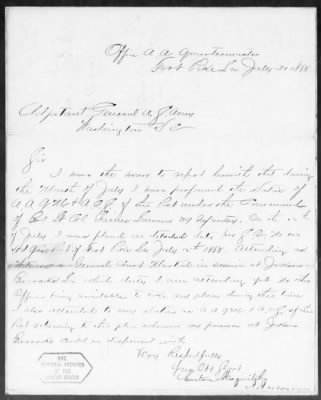 Office A. A. Quartermaster
Fort Pike La July 31 1868
Adjutant General U.S. Army
Washington D.C.
Sir
I have the honor to report herewith that during
the Month of July I have performed the duties of
A A Q M & A C S of this Post under the Command
of Bvt Lt Col 39 Infantry. On the
of July I was placed on detached
of Fort Pike La July 1868. Attending as
General Court Martial in session at Jackson
Barracks La which duties I am attending yet. No other
Officer being available to take my place during this time
I also attended to my duties as A A Q M & A C S of this
Post returning to this place whenever my presence at Jackson
Barracks could be dispensed with
Very Respectfully
Your Obt Servt
Gustav
THE
NATIONAL ARCHIVES
OF THE
UNITED STATES